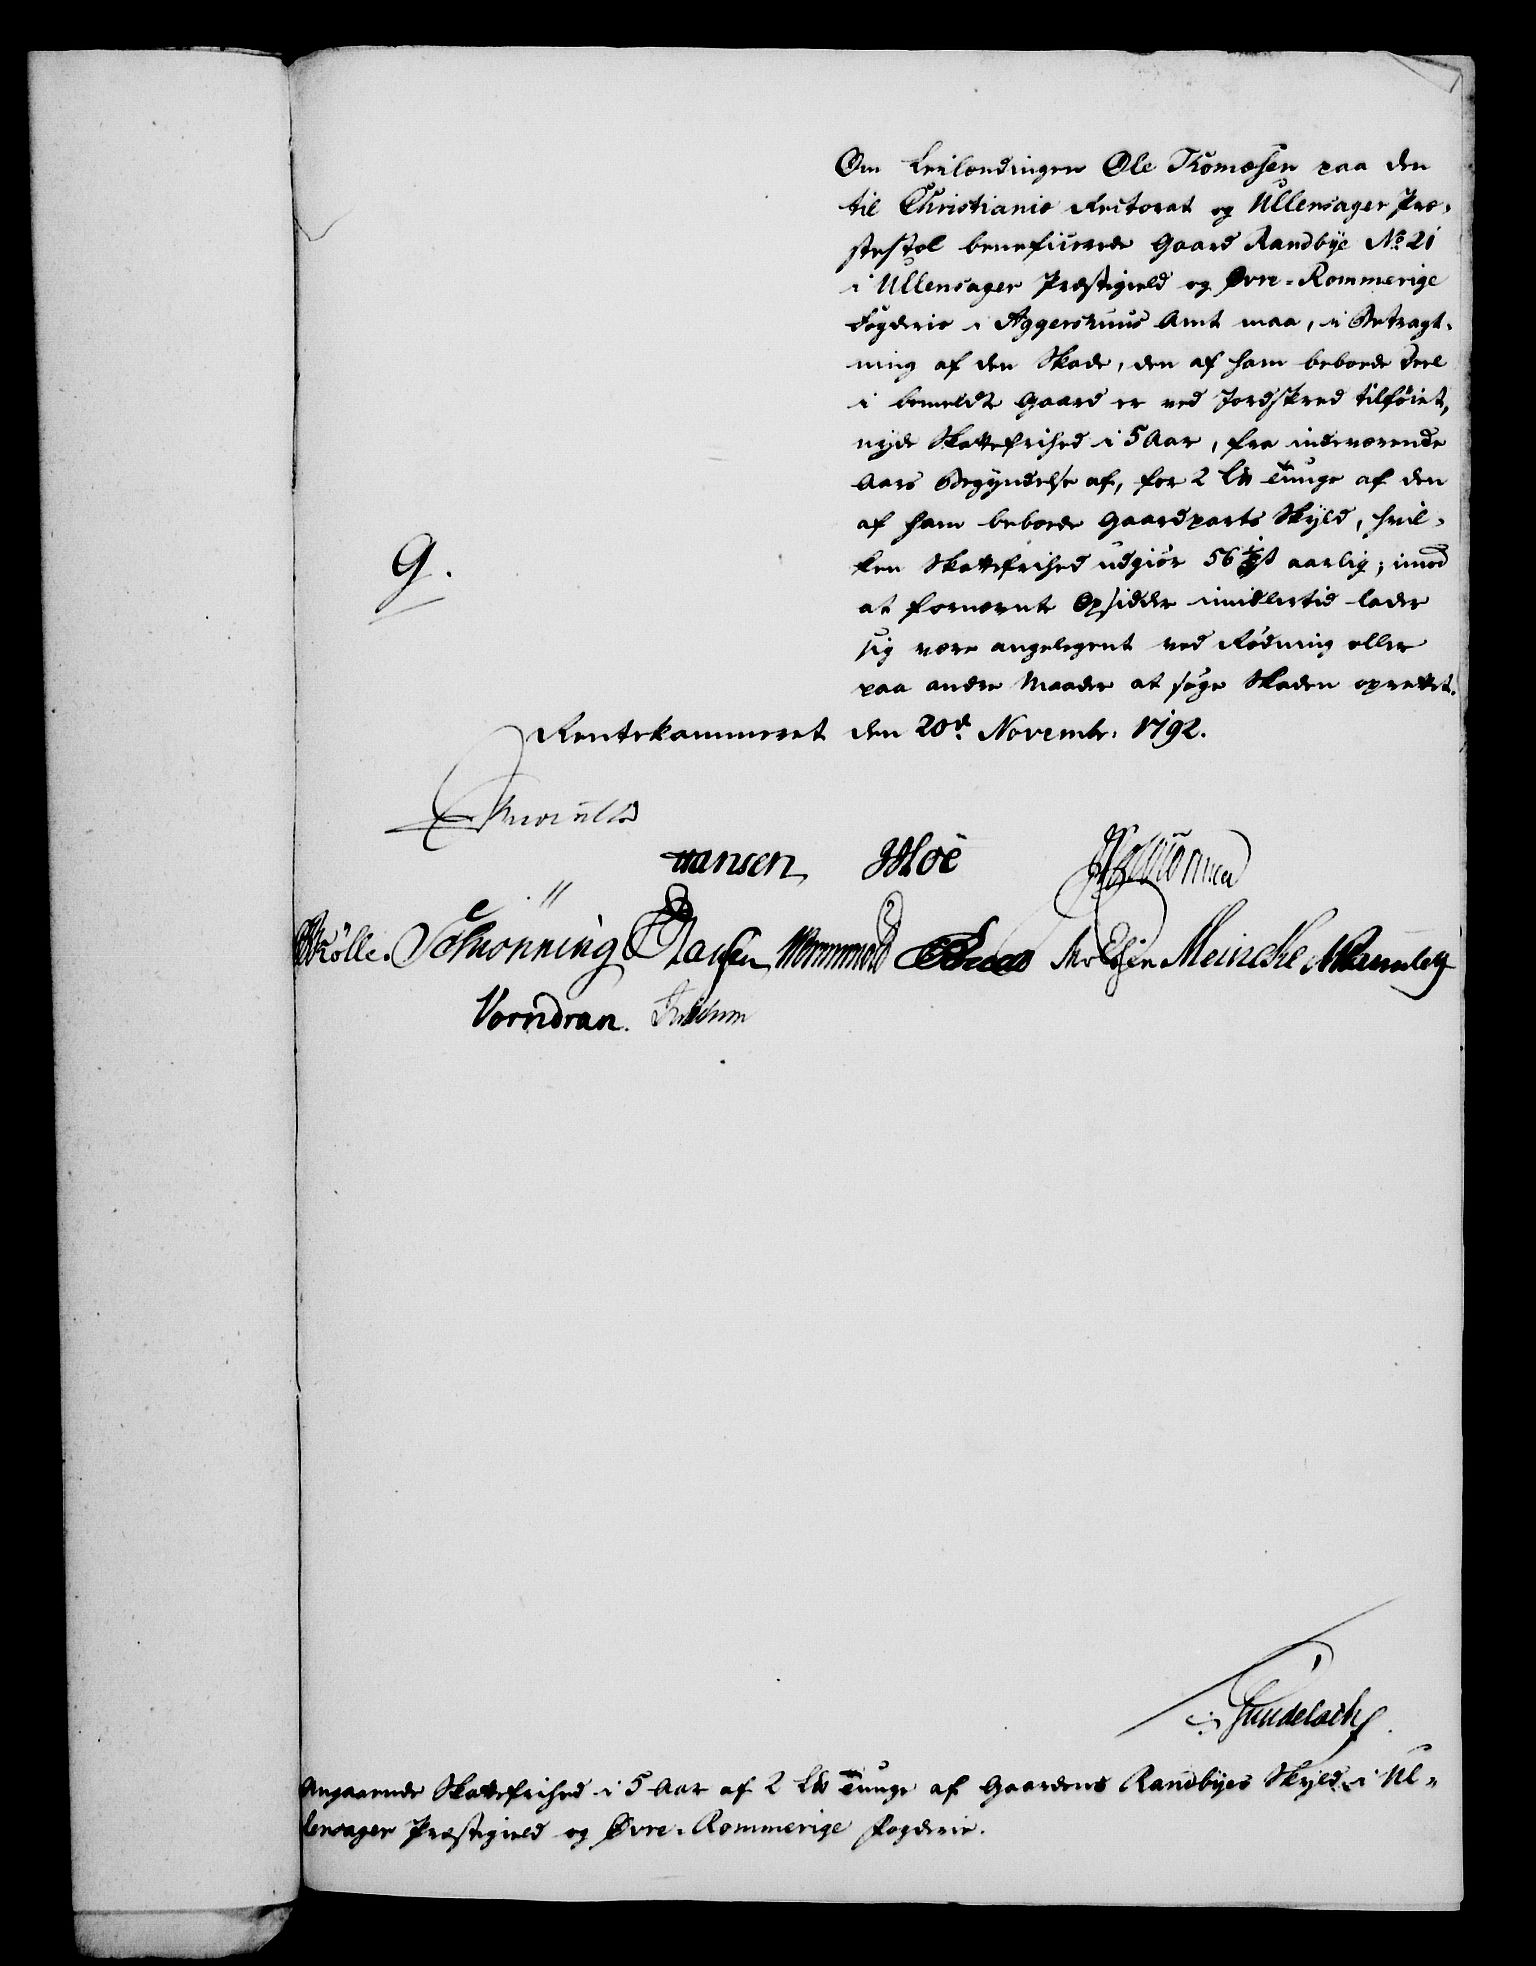 Om Leilændingen Ole Thomæsen paa den
til Christiania Rectorat og Ullensager Præ-
stestol beneficerede Gaard Randbye No 21
i Ullensager Præstegield og Øvre-Rommerige
Fogderie i Aggershuus Amt maa, i Betragt-
ning af den Skade, den af ham beboede Deel
i bemeldte Gaard er ved Jordskred tilføiet,
nyde Skattefrihed i 5 Aar, fra indeværende
Aars Begyndelse af, for 2 Lb Tunge af den
af ham beboede Gaardparts Skyld, hvil-
ken Skattefrihed udgiør 56 ½ s aarlig; imod
at fornævnte Opsidder imidlertid lader
sig være angelegent ved Rødning eller
paa andre Maader at søge Skaden oprettet.
9.
Rentekammeret den 20d Novembr. 1792.
Hansen Moe
Schiønning Wormwold Meincke
Vorndran.
Gundelach
Angaaende Skattefrihed i 5 Aar af 2 Lb Tunge af Gaardens Randbyes Skyld i Ul-
lensager Præstegield og Øvre-Rommerige Fogderie.